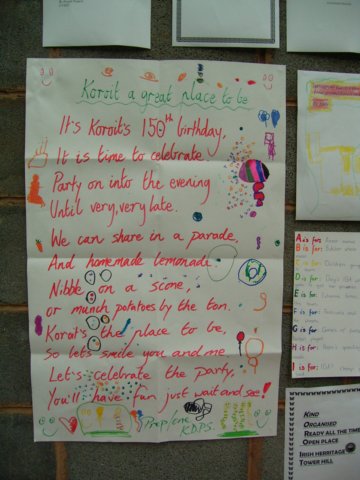 Koroit a great place to be
It's Koroit's 150th birthday,
It is time to celebrate
Party on into the evening
Until very, very late.
We can share in a parade,
And homemade lemonade.
Nibble on a scone,
or munch potatoes by the ton.
Koroit's the place to be,
So lets smile you and me
Let's celebrate the party,
You'll have fun just wait and see!
Prep/one
K.D.P.S.
A is for:
B is for:
C is for:
D is for:
E is for:
F is for:
G is for:
H is for:
I is for:
KIND
ORGANISED
READY ALL THE TIME
OPEN PLACE
IRISH HERRITAGE
TOWER HILL